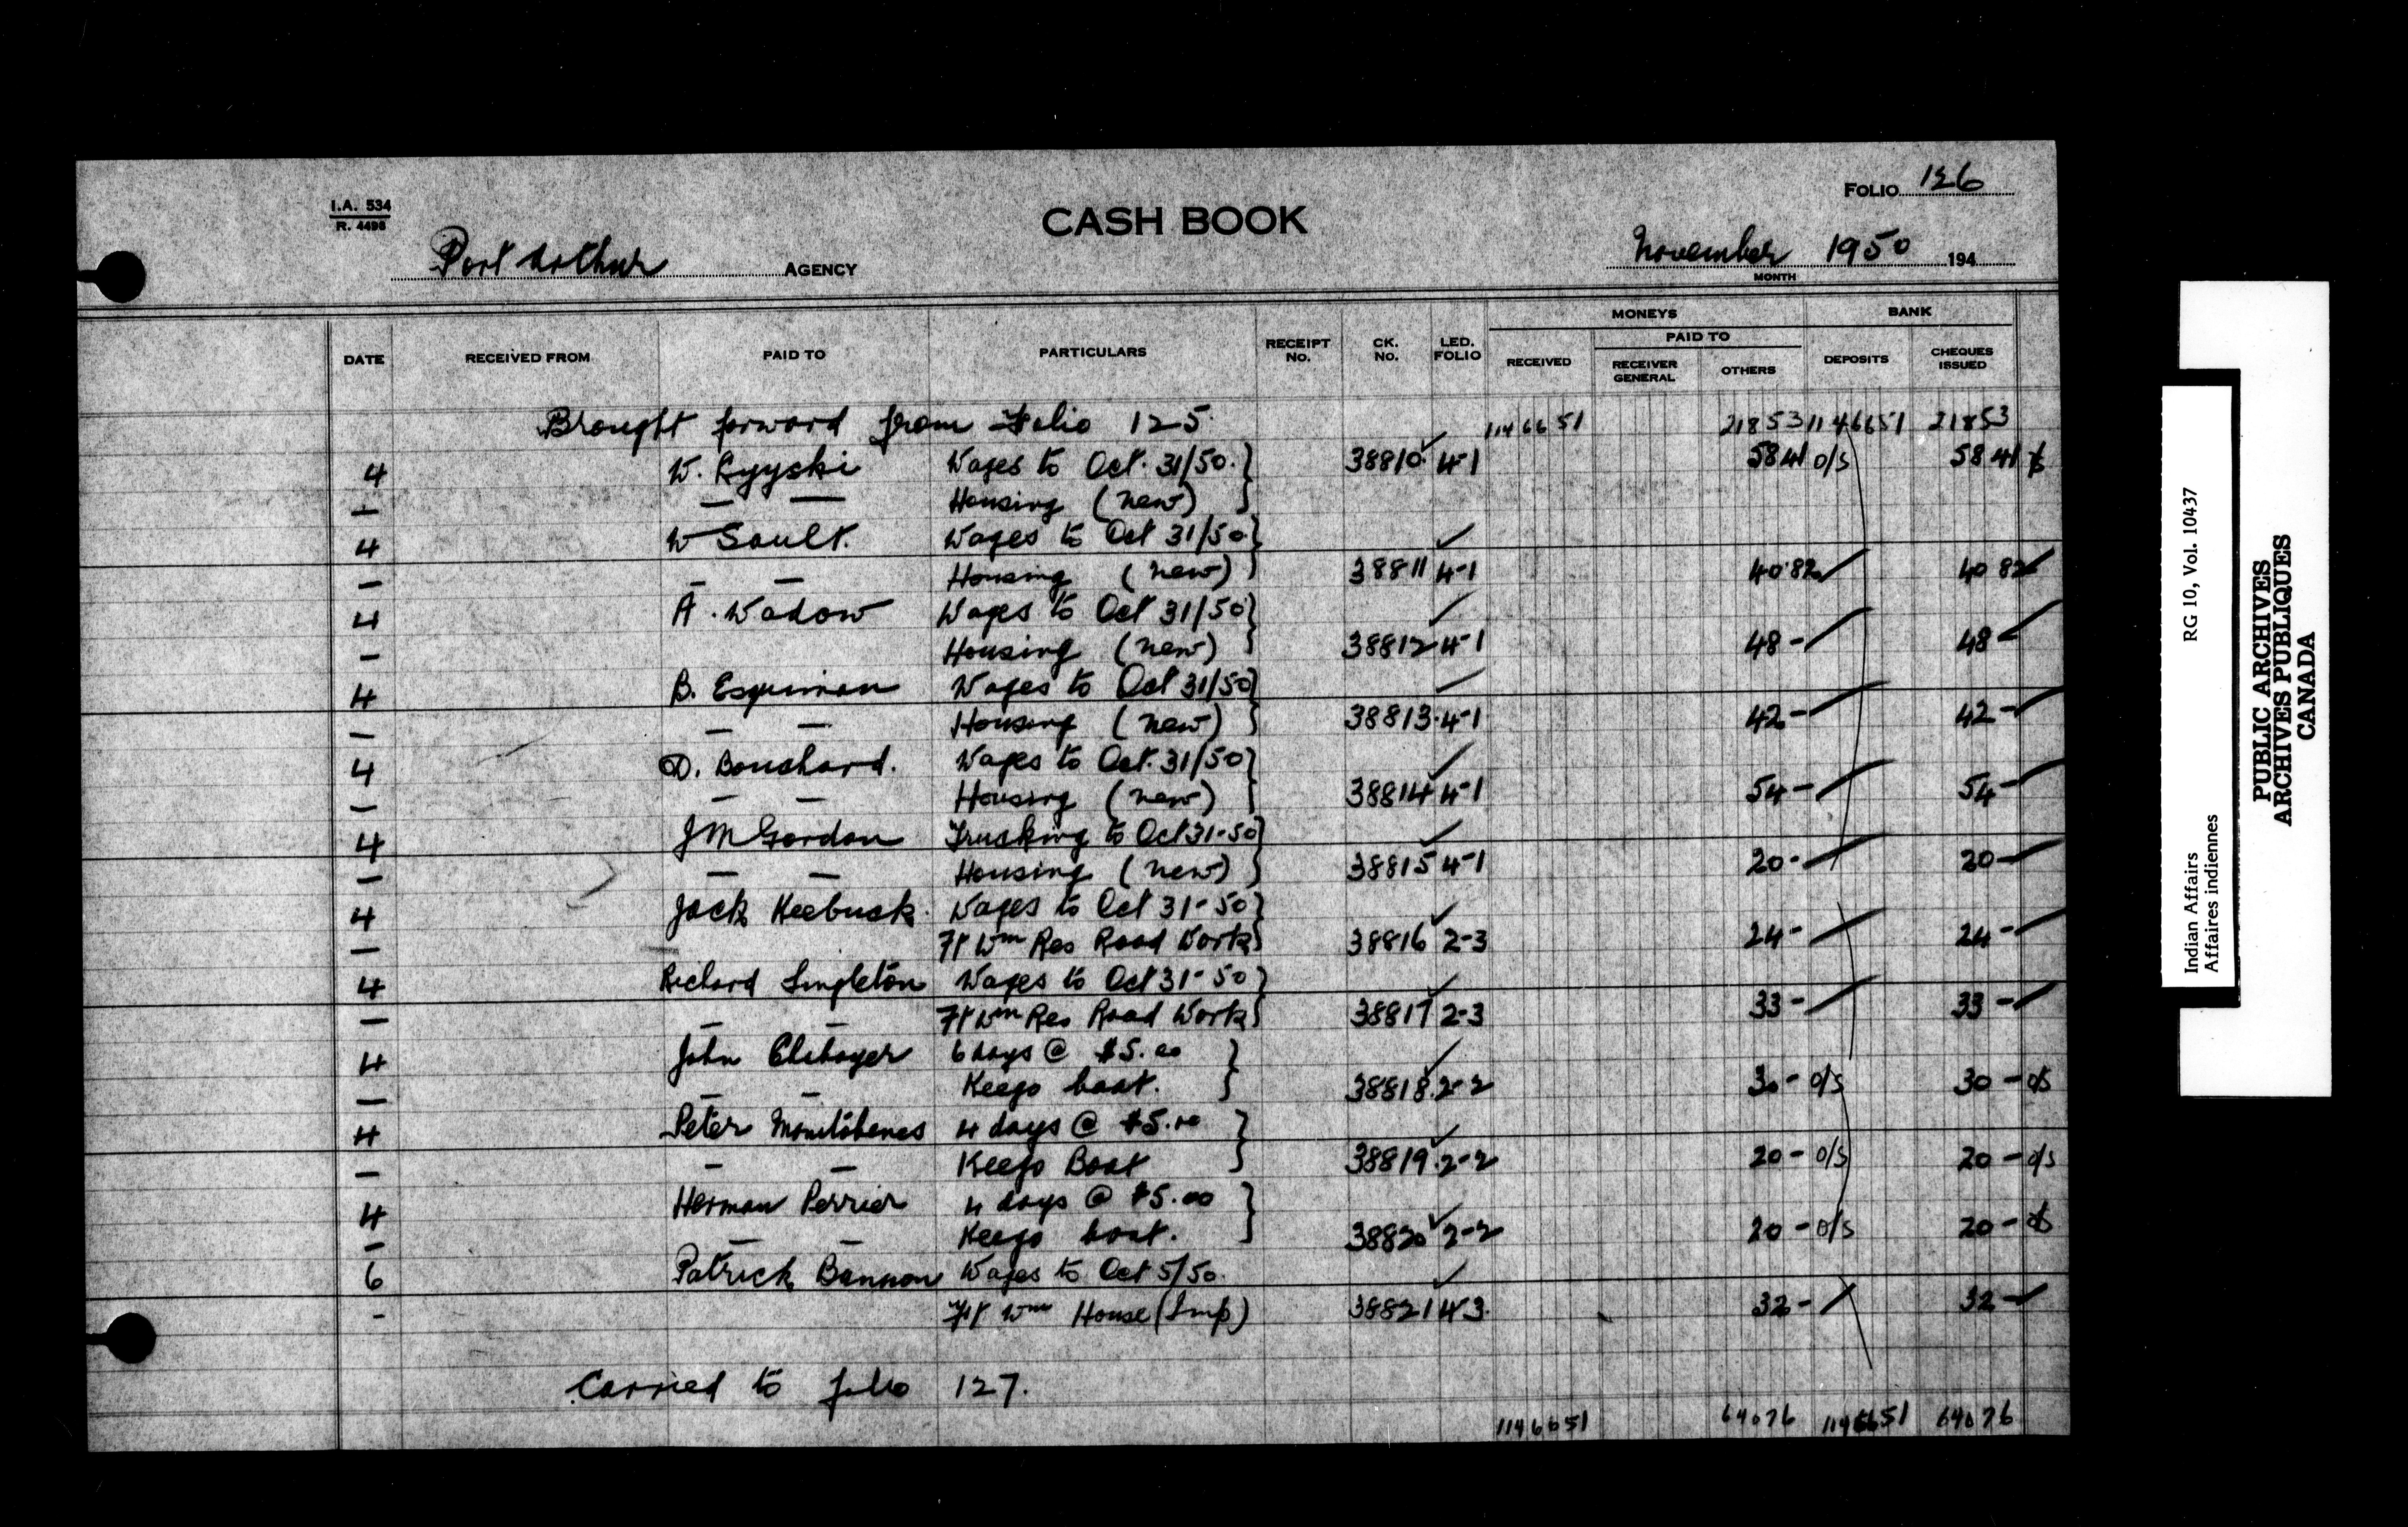 FOLIO 126
I.A. 534
R. 4496
CASH BOOK
Port Arthur AGENCY
November 1950 194
MONTH
MONEYS BANK
DATE RECEIVED FROM PAID TO PARTICULARS RECEIPT No. CK. No. LED. FOLIO RECEIVED PAID TO RECEIVER GENERAL OTHERS DEPOSITS CHEQUES ISSUED
Brought forward from Folio 125. 11466 51 218 53 11466 51 218 53
4 W. Wages to Oct. 31/50. 38810 4-1 58 41 o/s 58 41
— — — Housing (new)
4 W Sault. Wages to Oct 31/50
— — — Housing (new) 38811 4-1 40 82 40 82
4 A. Wadow Wages to Oct 31/50
— Housing (new) 38812 4-1 48 - 48
4 B. Esquimau Wages to Oct 31/50
— — — Housing (new) 38813 4-1 42 - 42 -
4 D. Boushard. Wages to Oct. 31/50
— — — Housing (new) 38814 4-1 54 - 54 -
4 J M Gordon Trucking to Oct 31-50
— — — Housing (new) 38815 4-1 20 - 20 -
4 Jack Keebuck. Wages to Oct 31-50
— Ft Wm Res Road Work 38816 2-3 24 - 24 -
4 Richard Singleton Wages to Oct 31-50
— — — Ft Wm Res Road Work 38817 2-3 33 - 33 -
4 John 6 days @ $5.00
— — — Keego boat. 38818 2-2 30 - o/s 30 - o/s
4 Peter 4 days @ $5.00
— — — Keego Boat 38819 2-2 20 - o/s 20 - o/s
4 Herman Perrier 4 days @ $5.00
— — — Keego boat. 38820 2-2 20 - o/s 20 - o/s
6 Patrick Bannon Wages to Oct 5/50.
- Ft Wm House (Imp) 38821 4-3 32 - 32 -
Carried to folio 127.
11466 51 640 76 11466 51 640 76
Indian Affairs RG 10, Vol. 10437
Affaires indiennes
PUBLIC ARCHIVES
ARCHIVES PUBLIQUES
CANADA